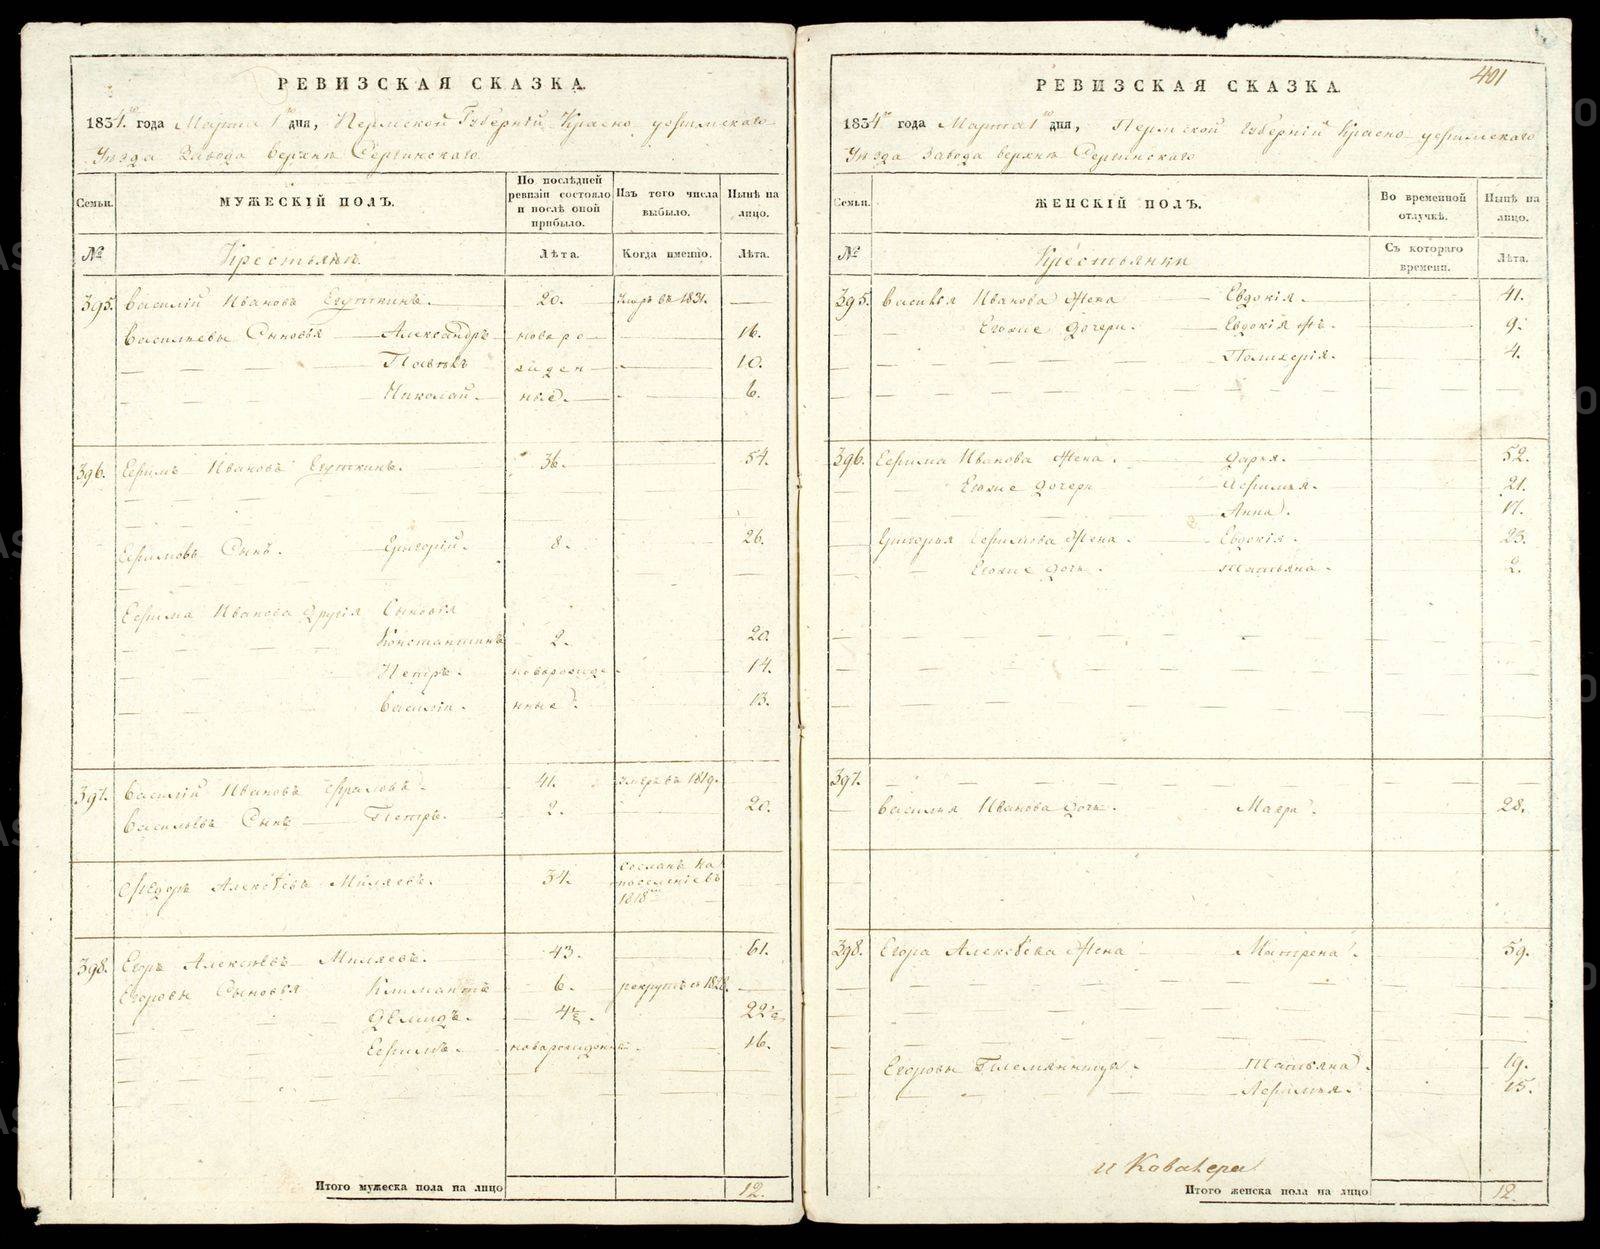 РЕВИЗСКАЯ СКАЗКА.
1834го года Марта 1го дня, Пермской Губернии Красно уфимскаго
Уезда Завода верхне Сергинскаго
Семьи.
МУЖЕСКІЙ ПОЛЪ.
По послѣдней ревизіи состояло и послѣ оной прибыло.
Изъ того числа выбыло.
Нынѣ на лицо.
№
Крестьяне.
Лѣта.
Когда именно.
Лѣта.
395. Василій Ивановъ 20. Умеръ въ 1831. —
Васильевы Сыновья — Александръ новоро 16.
Павелъ жден 10.
Николай ные. 6.
396. Ефимъ Ивановъ 36. 54.
Ефимовъ Сынъ. — Григорій. 8. 26.
Ефима Иванова другія Сыновья
Константинъ 2. 20.
Петръ. новорожде 14.
Василій. нные. 13.
397. Василій Ивановъ 41. умеръ въ 1819.
Васильевъ Сынъ — Петръ. 2. 20.
Федоръ Алексѣевъ Миляевъ. 34. сосланъ на поселеніе въ 1818мъ
398. Егоръ Алексѣевъ Миляевъ. 43. 61.
Егоровы Сыновья 6. рекрутъ в 1828. —
Демидъ. 4½. 22½
Ефимъ. новорожденный. 16.
Итого мужеска пола на лицо 12.
401
РЕВИЗСКАЯ СКАЗКА.
1834го года Марта 1го дня, Пермской Губерніи Красно уфимскаго
Уезда Завода верхне Сергинскаго
Семьи.
ЖЕНСКІЙ ПОЛЪ.
Во временной отлучкѣ.
Нынѣ на лицо.
№
Крестьянки
Съ котораго времени.
Лѣта.
395. Василья Иванова Жена — Евдокія. 41.
Егоже дочери. — Евдокія 9.
Полихерія. 4.
396. Ефима Иванова Жена. — Дарья. 52.
Егоже дочери — Афимья. 21.
Анна. 17.
Григорья Ефимова Жена. — Евдокія. 23.
Егоже дочь. — Татьяна. 2.
397.
Василья Иванова дочь. Мавра. 28.
398. Егора Алексѣева Жена Матрена. 59.
Егоровы Племянницы. Татьяна. 19.
Афимья. 15.
Итого женска пола на лицо 12.